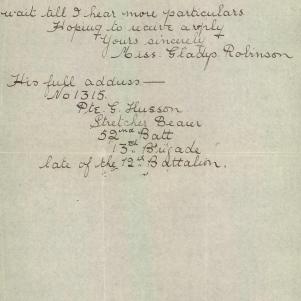 wait till I hear more particulars
Hoping to receive a reply
Yours sincerely
Miss. Gladys Robinson
His full address—
No 1315.
Pte. G. Husson
Stretcher Bearer
52nd Batt
13rd Brigade
late of the 12th Battalion.